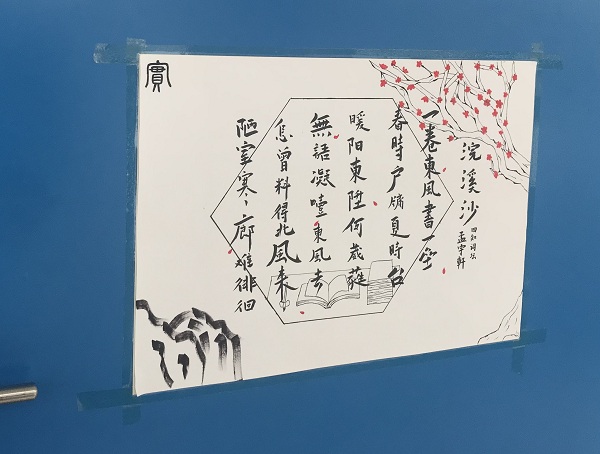 實
浣溪沙
孟宇軒
一卷東風書一
春時戶牖夏時台
暖阳東陞何蔵
無語凝噎東風去
怎曾料得北風来
陋室寒、廊难徘徊